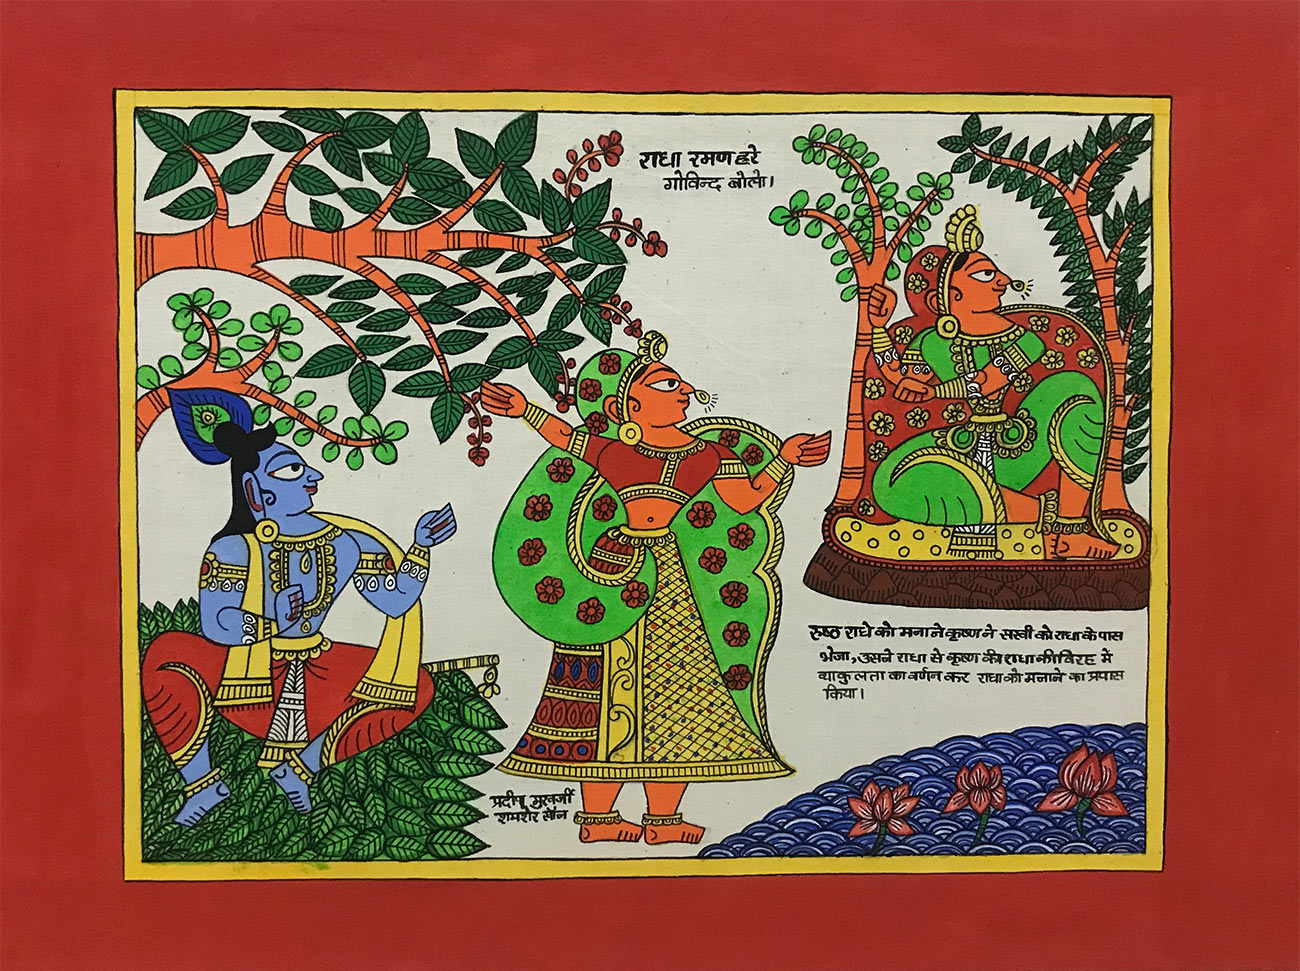 राधा रमण हरे
गोविन्द बोलो।
रुष्ठ राधे को मनाने कृष्ण ने सखी को राधा के पास
भेजा, उसने राधा से कृष्ण की राधा की विरह में
व्याकुलता का वर्णन कर राधा को मनाने का प्रयास
किया।
प्रदीप मुखर्जी
शमशेर खॉन